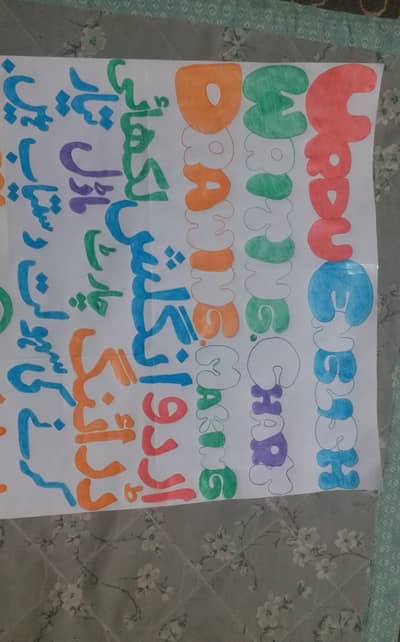 URDU ENGLISH
WRITING. CHART
DRAWING. MAKING
اردو انگلش لکھائی
ڈرائنگ چارٹ ماڈل تیار
کرنے کی سہولت دستیاب ہیں.